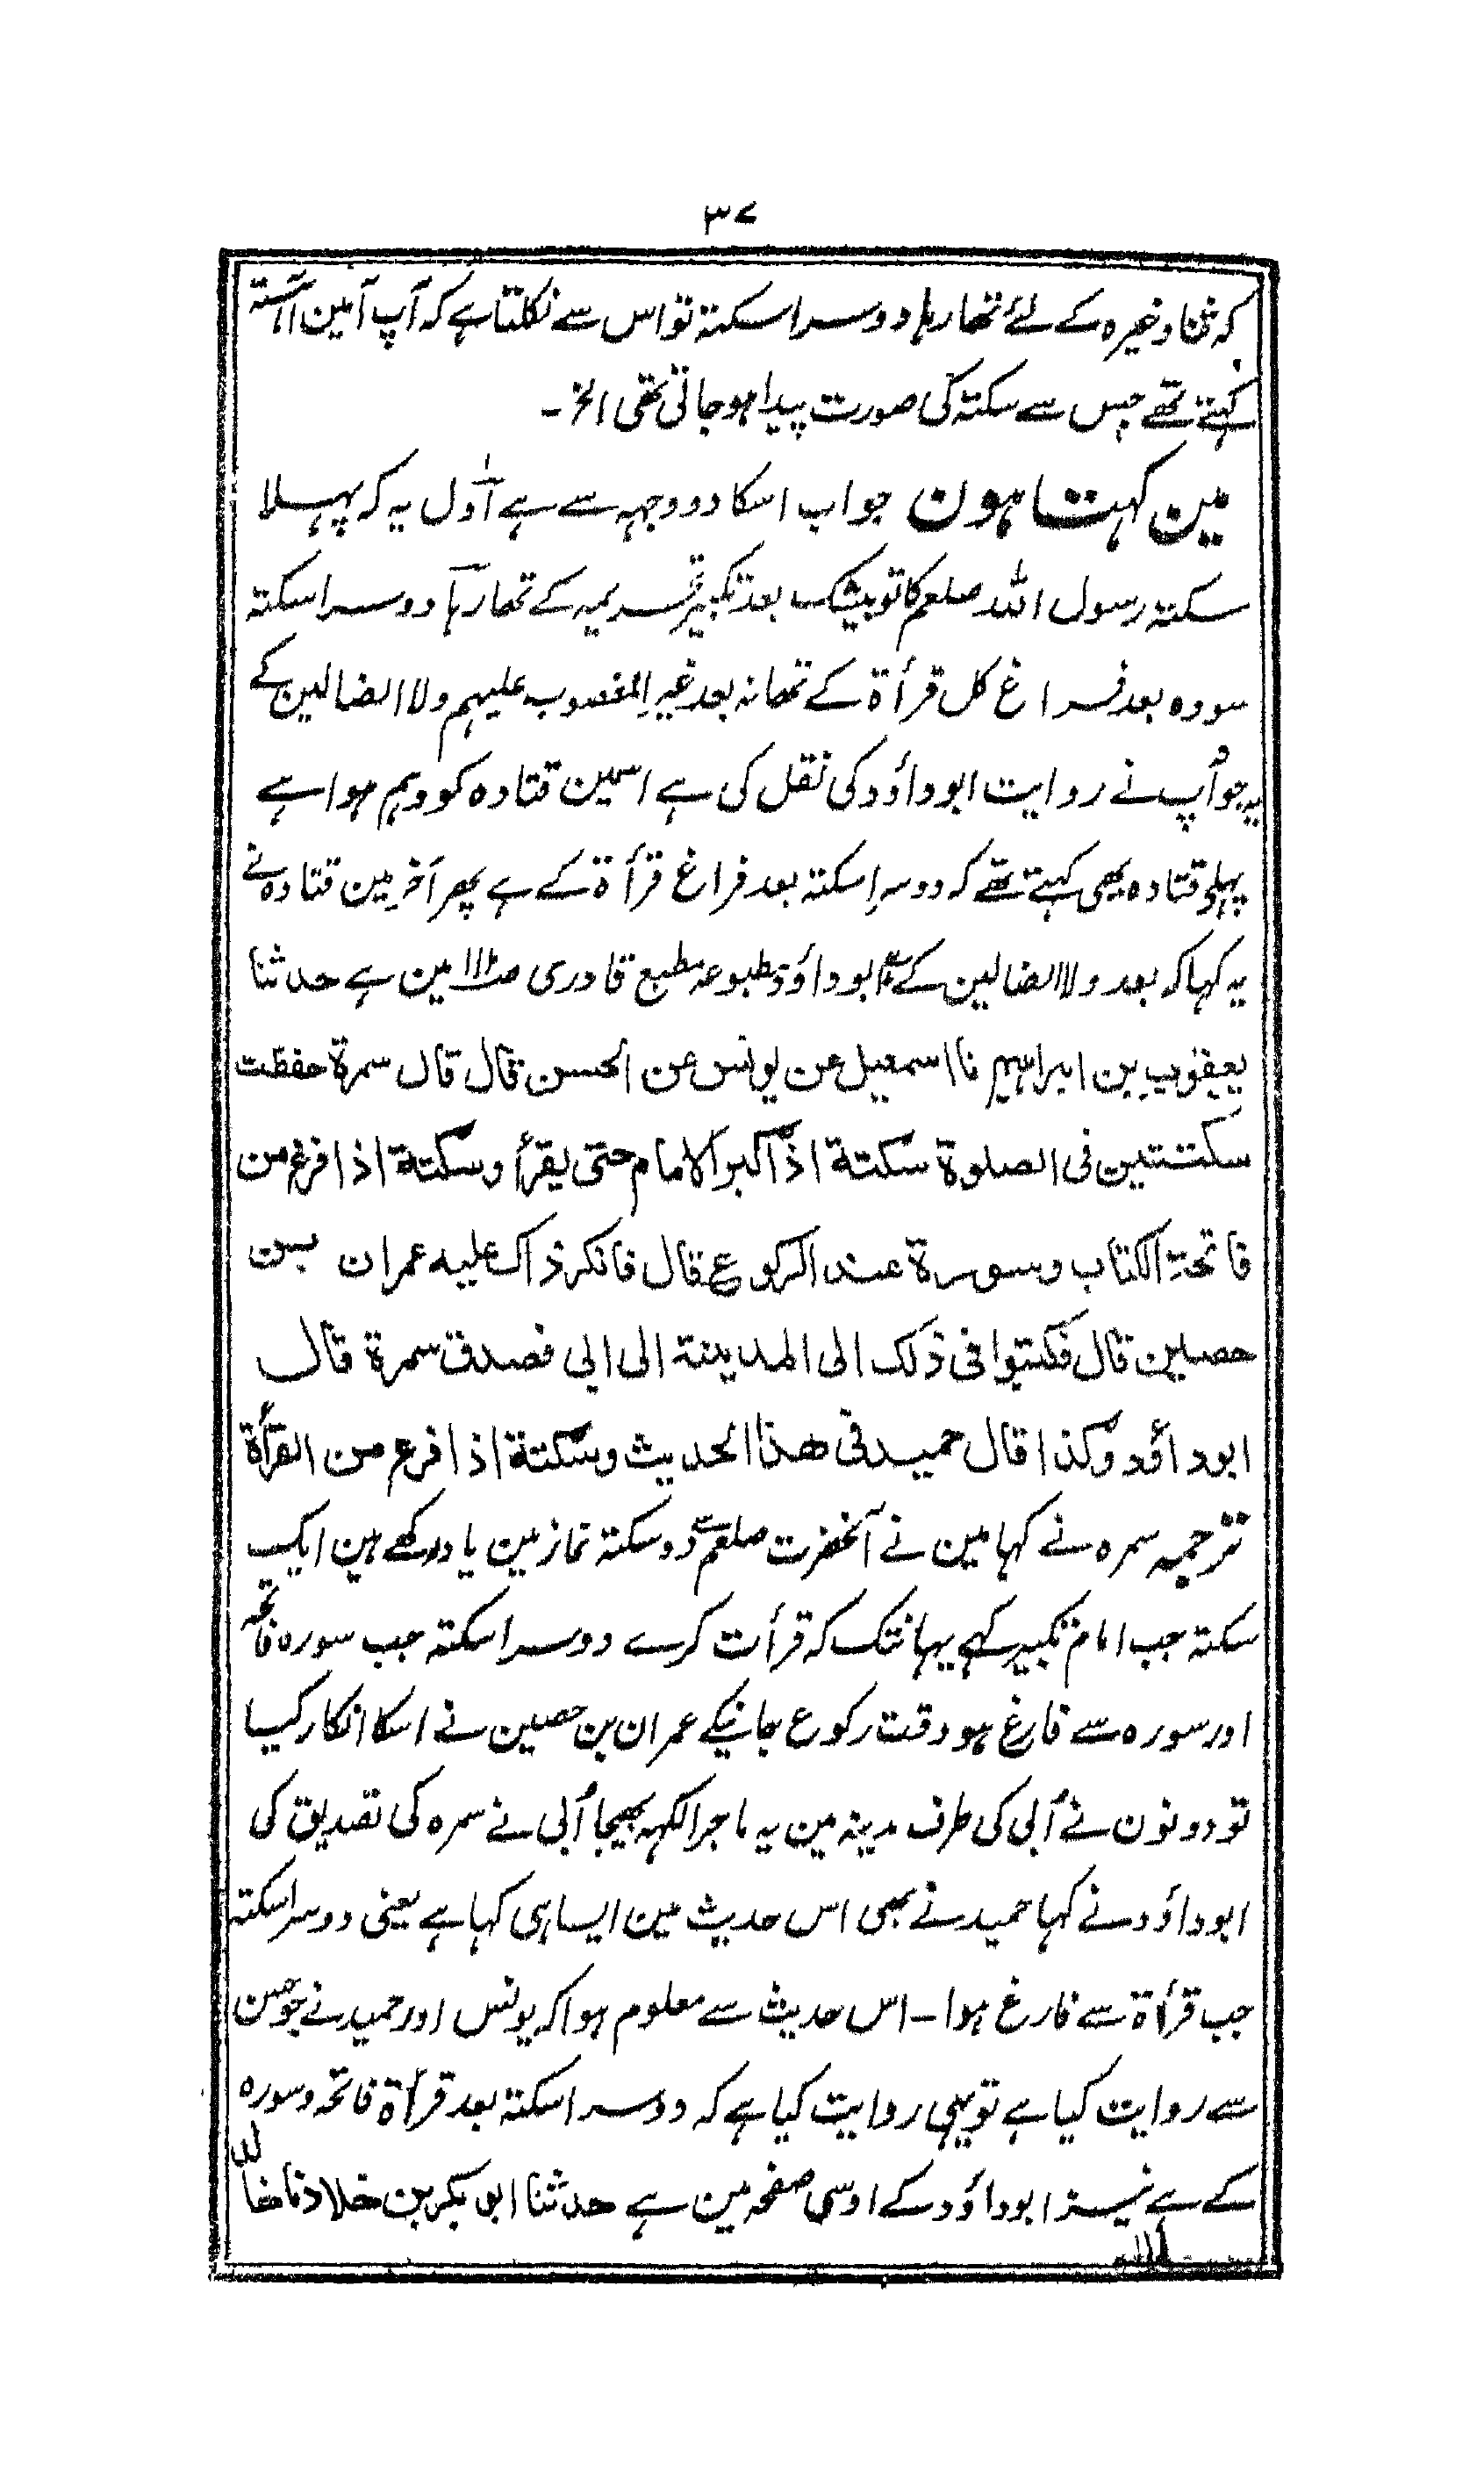 ۳۷
کہ ثنا وغیرہ کے لئے تھا رہا دوسرا سکتہ تو اس سے نکلتا ہے کہ آپ آمین آہستہ
کہتے تھے جس سے سکتہ کی صورت پیدا ہو جاتی تھی الخ۔
مین کہتا ہون جواب اسکا دو وجہہ سے ہے اول یہ کہ پہلا
سکتہ رسول اللہ صلعم کا تو بیشک بعد تکبیر تحریمیہ کے تھا رہا دوسرا سکتہ
سو وہ بعد فراغ کل قرأۃ کے تھا نہ بعد غیر المغضوب علیہم ولا الضالین کے
یہ جو آپ نے روایت ابو داؤد کی نقل کی ہے اسمین قتادہ کو وہم ہوا ہے
پہلی قتادہ بھی کہتے تھے کہ دوسرا سکتہ بعد فراغ قرأۃ کے ہے پھر آخر مین قتادہ نے
یہ کہا کہ بعد ولا الضالین کے ہے ابو داؤد مطبوعہ مطبع قادری صـ۱۱۱ مین ہے حدثنا
یعقوب بن ابراہیم نا اسمعیل عن یونس عن الحسن قال قال سمرۃ حفظت
سکتتین فی الصلوۃ سکتة اذا کبر الامام حتی یقرأ وسکتة اذا فرغ من
فاتحۃ الکتاب وسورۃ عند الرکوع قال فانکر ذاک علیه عمران بن
حصین قال فکتبوا فی ذلک الی المدینة الی ابی فصدق سمرۃ قال
ابو داؤد وکذا قال حمید فی هذا الحدیث وسکتة اذا فرغ من القرأۃ
ترجمہ سمرہ نے کہا مین نے آنحضرت صلعم سے دو سکتہ نماز مین یاد رکھے ہین ایک
سکتہ جب امام تکبیر کہے یہانتک کہ قرأت کرے دوسرا سکتہ جب سورہ فاتحہ
اور سورہ سے فارغ ہو وقت رکوع جانیکے عمران بن حصین نے اسکا انکار کیا
تو دونون نے اُبی کی طرف مدینہ مین یہ ماجرا لکہہ بھیجا اُبی نے سمرہ کی تصدیق کی
ابو داؤد نے کہا حمید نے بھی اس حدیث مین ایسا ہی کہا ہے یعنی دوسرا سکتہ
جب قرأۃ سے فارغ ہوا۔ اس حدیث سے معلوم ہوا کہ یونس اور حمید نے جو حسن
سے روایت کیا ہے تو یہی روایت کیا ہے کہ دوسرا سکتہ بعد قرأۃ فاتحہ و سورہ
کے ہے نیز ابو داؤد کے اوسی صفحہ مین ہے حدثنا ابو بکر بن خلاد نا خالد